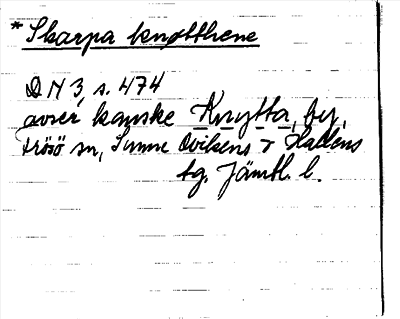 * Skarpa knøtthene
DN 3, s. 474
avser kanske Knytta, by,
Frösö sn, Sunne Ovikens o Hallens
tg, Jämtl. l.